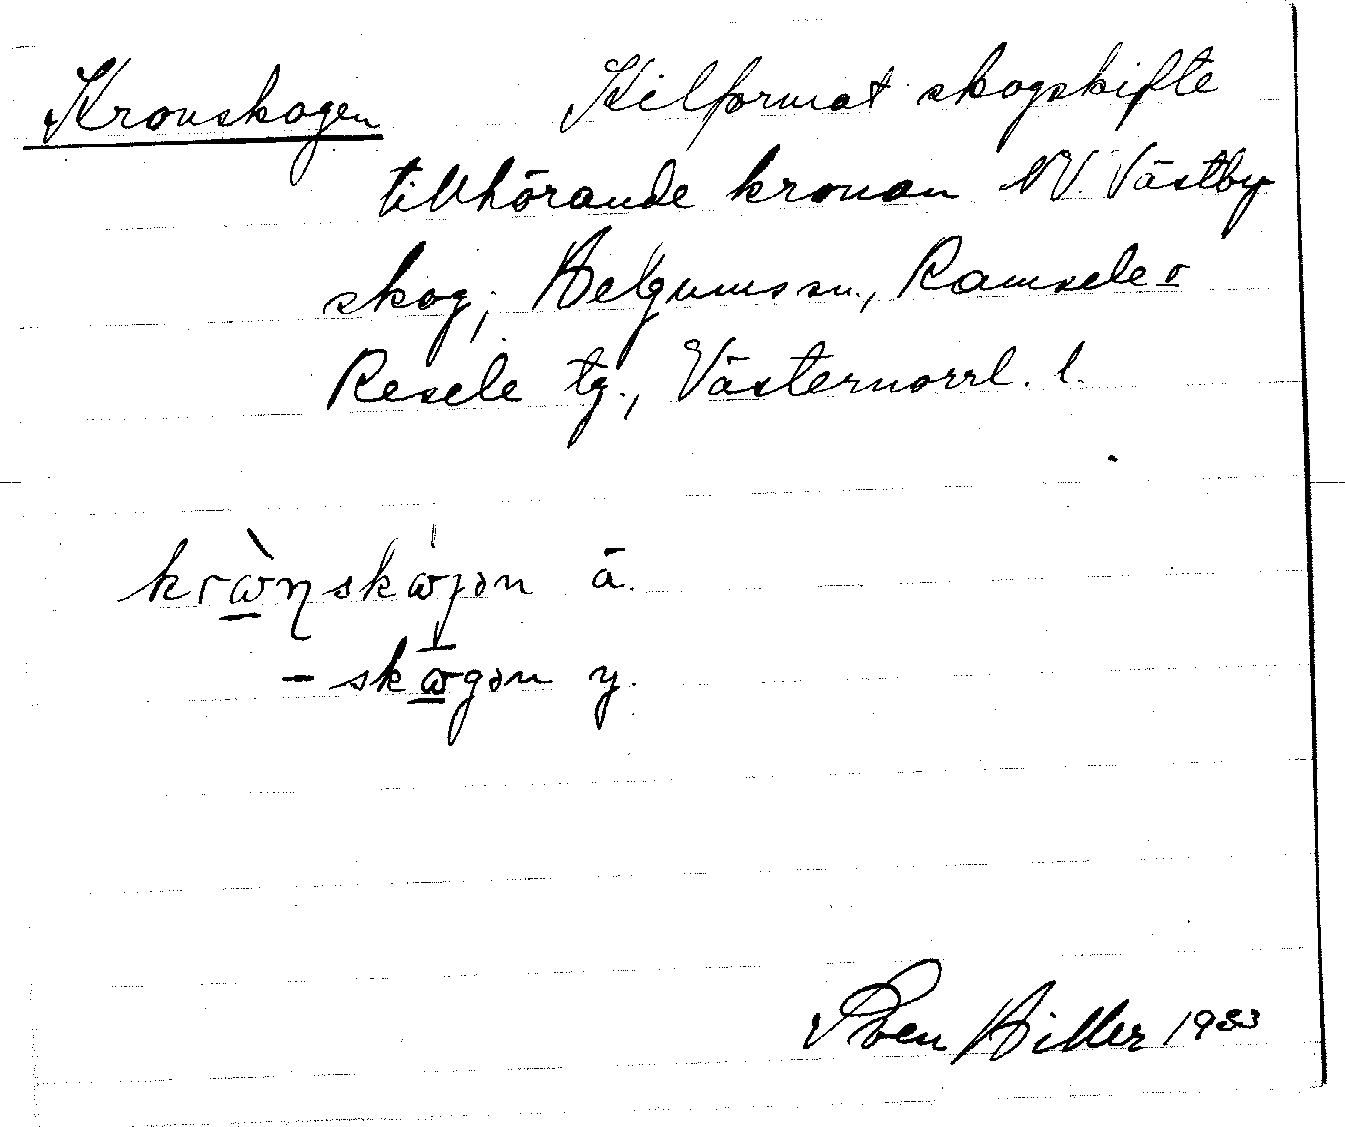 Kronskogen Kilformat skogskifte
tillhörande kronan NV. Västby
skog; Helgums sn., Ramsele o
Resele tg., Västernorrl. l.
krὼ̲ŋskὼȷən ä.
- skω̲gən y.
Sven Hiller 1933